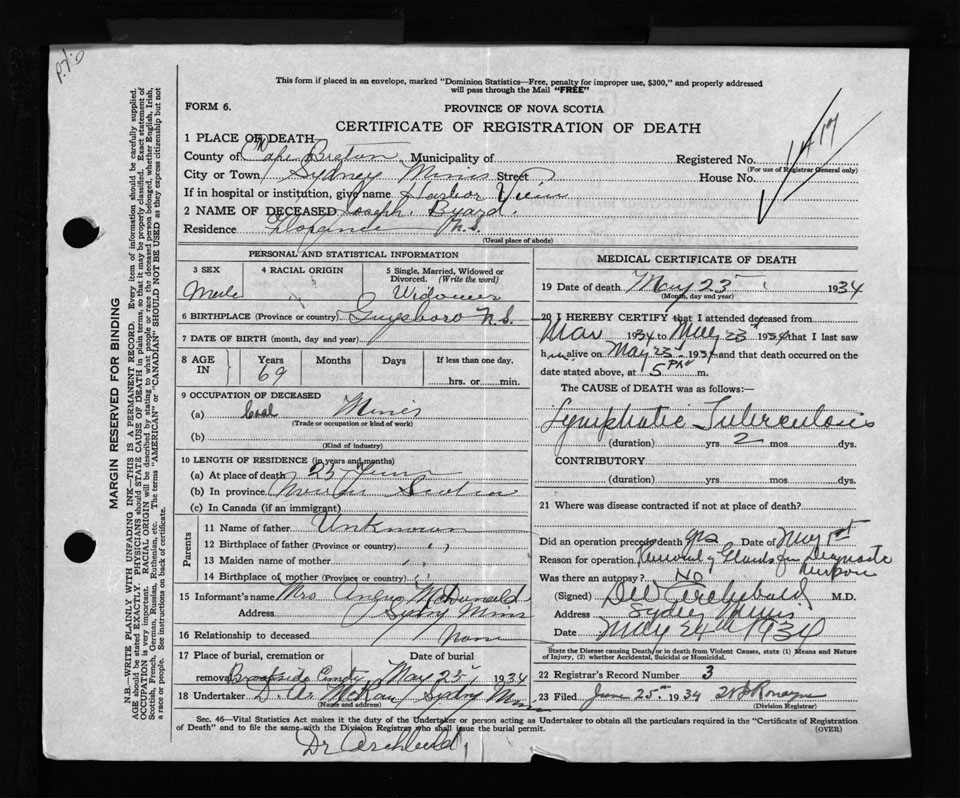 P.T.O
This form if placed in an envelope, marked "Dominion Statistics—Free, penalty for improper use, $300," and properly addressed
will pass through the Mail "FREE"
FORM 6.
PROVINCE OF NOVA SCOTIA
CERTIFICATE OF REGISTRATION OF DEATH
1417
1 PLACE OF DEATH
County of Cape Breton Municipality of Registered No.
(For use of Registrar General only)
City or Town Sydney Mines Street House No.
If in hospital or institution, give name Harbor View
2 NAME OF DECEASED Joseph Byard.
Residence Florence N.S.
(Usual place of abode)
PERSONAL AND STATISTICAL INFORMATION
3 SEX 4 RACIAL ORIGIN 5 Single, Married, Widowed or Divorced. (Write the word)
Male Widower
6 BIRTHPLACE (Province or country) Guysboro N.S.
7 DATE OF BIRTH (month, day and year)
8 AGE IN Years Months Days If less than one day,
69 hrs. or min.
9 OCCUPATION OF DECEASED
(a) Coal Miner
(Trade or occupation or kind of work)
(b)
(Kind of industry)
10 LENGTH OF RESIDENCE (in years and months)
(a) At place of death 25
(b) In province Nova Scotia
(c) In Canada (if an immigrant)
Parents
11 Name of father Unknown
12 Birthplace of father (Province or country) "
13 Maiden name of mother "
14 Birthplace of mother (Province or country) "
15 Informant's name Mrs Angus McDonald
Address Sydney Mines
16 Relationship to deceased None
17 Place of burial, cremation or Date of burial
removal Brookside Cmty May 25 1934
18 Undertaker D. A. McKay Sydney Mines
(Name and address)
MEDICAL CERTIFICATE OF DEATH
19 Date of death May 23 1934
(Month, day and year)
20 I HEREBY CERTIFY that I attended deceased from
Mar 1934 to May 23 1934 that I last saw
him alive on May 23 1934 and that death occurred on the
date stated above, at 5 PM m.
The CAUSE OF DEATH was as follows:—
Lymphatic Tuberculosis
(duration) yrs 2 mos dys.
CONTRIBUTORY
(duration) yrs. mos. dys.
21 Where was disease contracted if not at place of death?
Did an operation precede death yes Date of May 1st
Reason for operation Removal of Glands for Diagnostic
Purpose
Was there an autopsy? No
(Signed) Archibald M.D.
Address Sydney Mines
Date May 24th 1934
State the Disease causing Death, or in death from Violent Causes, state (1) Means and Nature
of Injury, (2) whether Accidental, Suicidal or Homicidal.
22 Registrar's Record Number 3
23 Filed June 25 1934
(Division Registrar)
Sec. 46—Vital Statistics Act makes it the duty of the Undertaker or person acting as Undertaker to obtain all the particulars required in the "Certificate of Registration
of Death" and to file the same with the Division Registrar who shall issue the burial permit. (OVER)
Dr Archibald,
MARGIN RESERVED FOR BINDING
N.B.—WRITE PLAINLY WITH UNFADING INK—THIS IS A PERMANENT RECORD. Every item of information should be carefully supplied.
AGE should be stated EXACTLY. PHYSICIANS should STATE CAUSE OF DEATH in plain terms, so that it may be properly classified. Exact statement of
OCCUPATION is very important. RACIAL ORIGIN will be described by stating to what people or race the deceased person belonged, whether English, Irish,
Scottish, French, German, Russian, Ruthenian, etc. The terms "AMERICAN" or "CANADIAN" SHOULD NOT BE USED as they express citizenship but not
a race or people. See instructions on back of certificate.